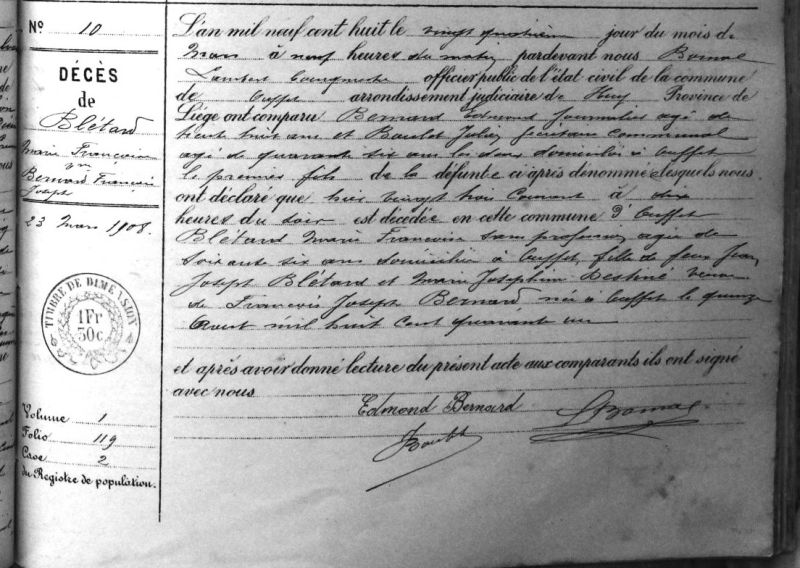 N° 10
DÉCÈS
de
Blétard
Marie Françoise
Bernard François
Joseph
23 Mars 1908.
TIMBRE DE DIMENSION
1 Fr
50 c.
Volume 1
Folio 119
Case 2
du Registre de population.
L'an mil neuf cent huit le vingt quatrième jour du mois de
Mars à neuf heures du matin pardevant nous Bomal
Lambert bourgmestre officier public de l'état civil de la commune
de Ouffet arrondissement judiciaire de Huy Province de
Liége ont comparu Bernard Edmond Journalier agé de
trente huit ans et Boulet Jules secrétaire communal
agé de quarante six ans les deux domiciliés à Ouffet
le premier fils de la défunte ci après dénommé e lesquels nous
ont déclaré que hier vingt trois courant à dix
heures du soir est décédée en cette commune d' Ouffet
Blétard Marie Françoise sans profession agée de
soixante six ans domiciliée à Ouffet, fille de feux Jean
Joseph Blétard et Marie Joséphine Destiné veuve
de François Joseph Bernard née à Ouffet le quinze
Août mil huit cent quarante un
et après avoir donné lecture du présent acte aux comparants ils ont signé
avec nous
Edmond Bernard LBomal
JBoulet